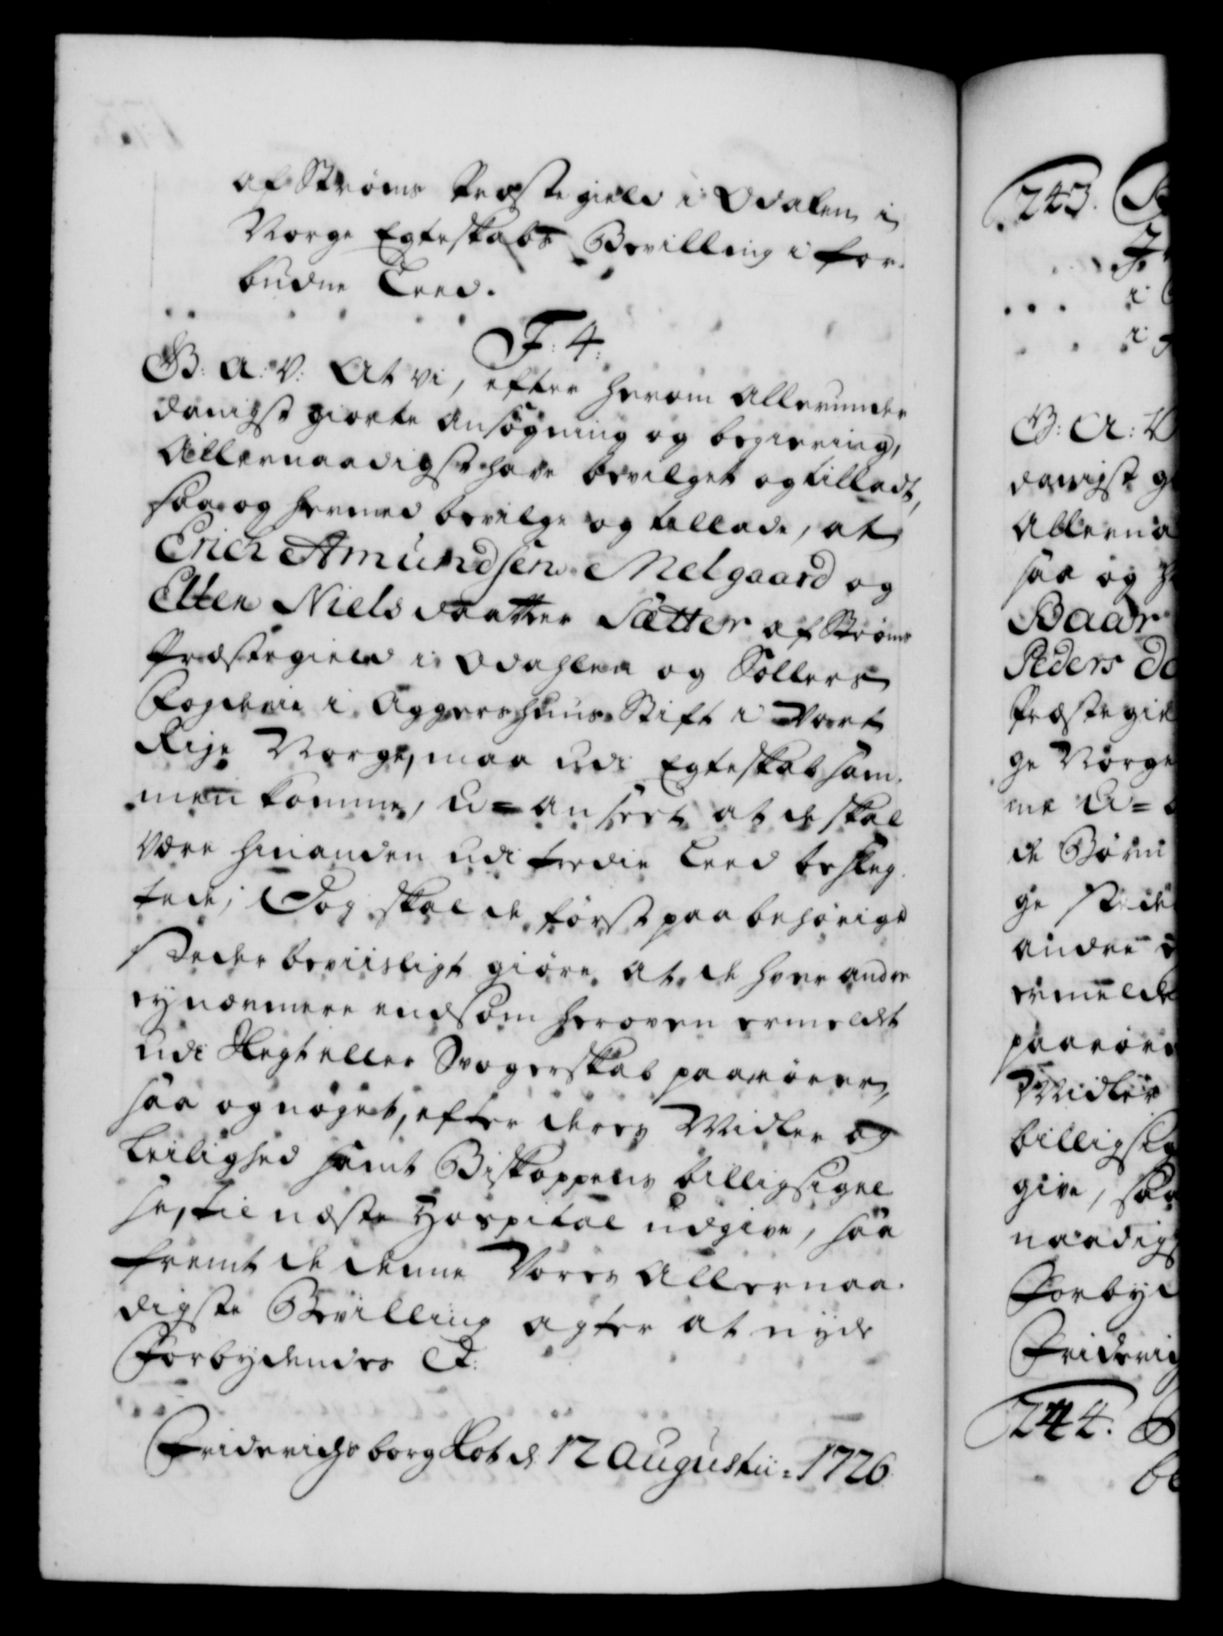 af Strøms Præstegield i Odalen i
Norge Egteskabs Bevilling i for-
budne Leed.
F: 4.
G: A: V: At vi, efter herom allerunder
danigst giorte ansøgning og begiering,
Allernaadigst have bevilget og tilladt,
saa og hermed bevilge og tillade, at
Erich Amundsen Melgaard og
Ellen Niels Daatter Sætter af Strøms
Præstegield i Odahlen og Sollers
Fogderie i Aggershuus Stift i Vort
Rige Norge, maa udi Egteskab sam-
men komme, u-anseet at de skal
være hinanden udi tredie Leed beslæg-
tede; Dog skal de først paa behørige
Steder beviisligt giøre at de hver andre
ey nærmere end som heroven ermeldt
udi Slegt eller Svogerskab paarører,
saa og noget, efter deres Midler og
Leilighed samt Biskoppens billigsigel
se, til næste Hospital udgive, saa
fremt de denne Vores Allernaa-
digste Bevilling agter at nyde
Forbydendes &.
Friderichsborg Slot d 12 Augustii: 1726.
243.
G: A: V
danigst g
Allerna
saa og h
Baar
Peders Da
Præstegie
ge Norge
me U-
de Børn
ge Stede
andre
ermeldt
paarøre
Midler
billigsig
give, saa
naadigs
Forbyd
Friderich
244.
be